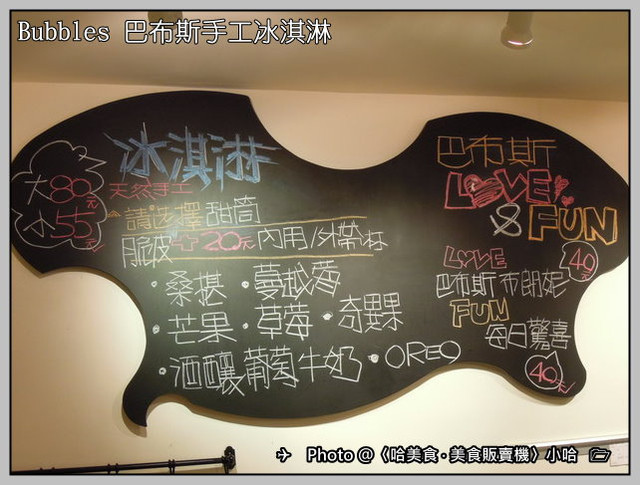 Bubbles 巴布斯手工冰淇淋
冰淇淋
大80元
小55元
天然手工
請選擇甜筒
脆皮+20元 內用/外帶杯
·桑椹 ·蔓越香
·芒果 ·草莓 ·奇異果
·酒釀葡萄牛奶 ·OREO
巴布斯
LOVE!
& FUN
LOVE
40元
巴布斯布朗妮
FUN
每日驚喜
40元/
✈ Photo @〈哈美食·美食販賣機〉小哈